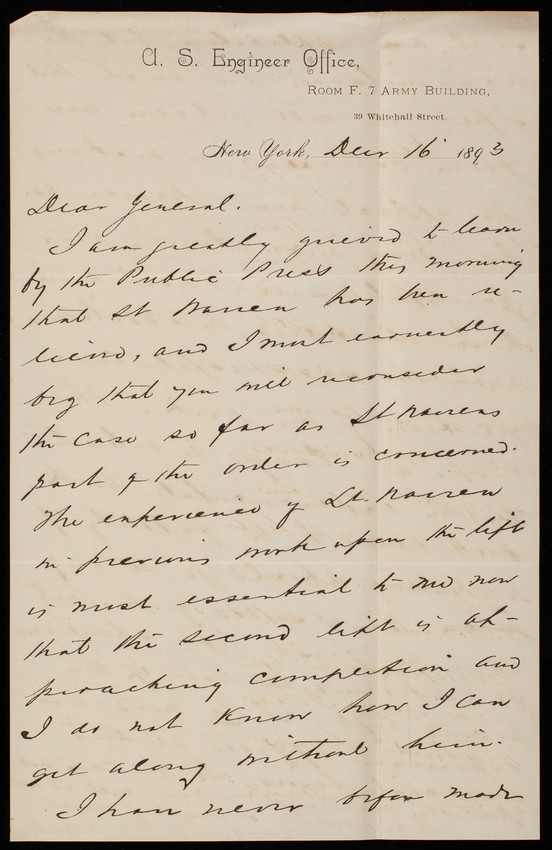 U. S. Engineer Office,
Room F. 7 Army Building,
39 Whitehall Street.
New York, Decr 16 1893
Dear General.
I am greatly grieved to learn
by the Public Press this morning
that Lt Warren has been re-
lieved, and I most earnestly
beg that you will reconsider
the case so far as Lt Warrens
part of the order is concerned.
The experience of Lt. Warren
in previous work upon the lift
is most essential to me now
that the second lift is ap-
proaching completion and
I do not know how I can
get along without him.
I have never before made